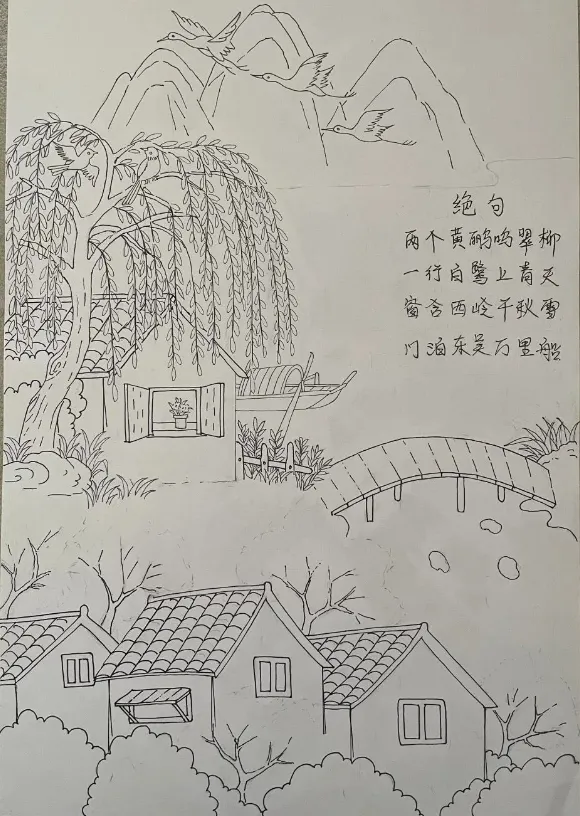 绝句
两个黄鹂鸣翠柳
一行白鹭上青天
窗含西岭千秋雪
门泊东吴万里船